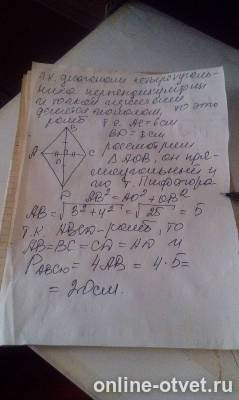 Т.к. диагонали четырёхуголь-
ника перпендикулярны
и точкой пересечен
делятся пополам, то это
ромб. Т.е. AC=6см
BD=8см
рассмотрим
ΔAOB, он пря-
моугольный и
по т. Пифагора
AB²=AO²+OB²
AB=√3²+4²=√25=5
т.к. ABCD-ромб, то
AB=BC=CD=AD и
P ABCD=4AB=4·5=
=20см.
B
A
C
D
online-otvet.ru